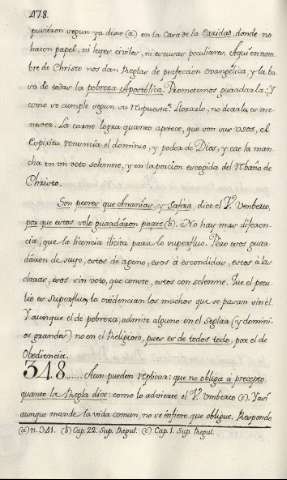 478.
pudieron segun ya dixe (a) en la Cara de la Caridad, donde no
hacen papel, ni leyes civiles, ni escusas peculiares. Aqui en nom
bre de Christo nos dan Reglas de perfeccion evangelica, y la ba
va de ser la pobreza Apostolica. Prometemos guardarla. Y
como se cumple segun su respuesta? Llorarlo, no dexarla es me
nester. La carne logra quanto apetece, que son sus usos, el
Espiritu renuncia el dominio, y poder de Dios, y cae la man
cha en un voto solemne, y en la porcion escogida del Rebaño de
Christo.
Son peores que Ananias, y Safira, dice el V. Umberto,
por que estos solo guardaron parte (b). No hay mas diferen
cia, que la licencia ilicita para lo superfluo. Pero esos guar
daron de suyo, estos de ageno, esos à escondidas, estos à la
claras, esos sin voto, que conste, estos con solemne. Que el pecu
lio es superfluo, lo evidencian los muchos que se pasan sin él.
Y aunque el de pobreza, admite alguno en el Seglar (y domini
os grandes) no en el Religioso, pues es de todos todo, por el de
Obediencia.
348..... Aun pueden replicar: que no obliga à precepto
quanto la Regla dice: como lo advierte el V. Umberto (c). Y asi
aunque mande la vida comun, no se infiere que obligue. Respondo
(a) n. 341. (b) Cap. 22. Sup. Regul. (c) Cap. 1. Sup. Regul.